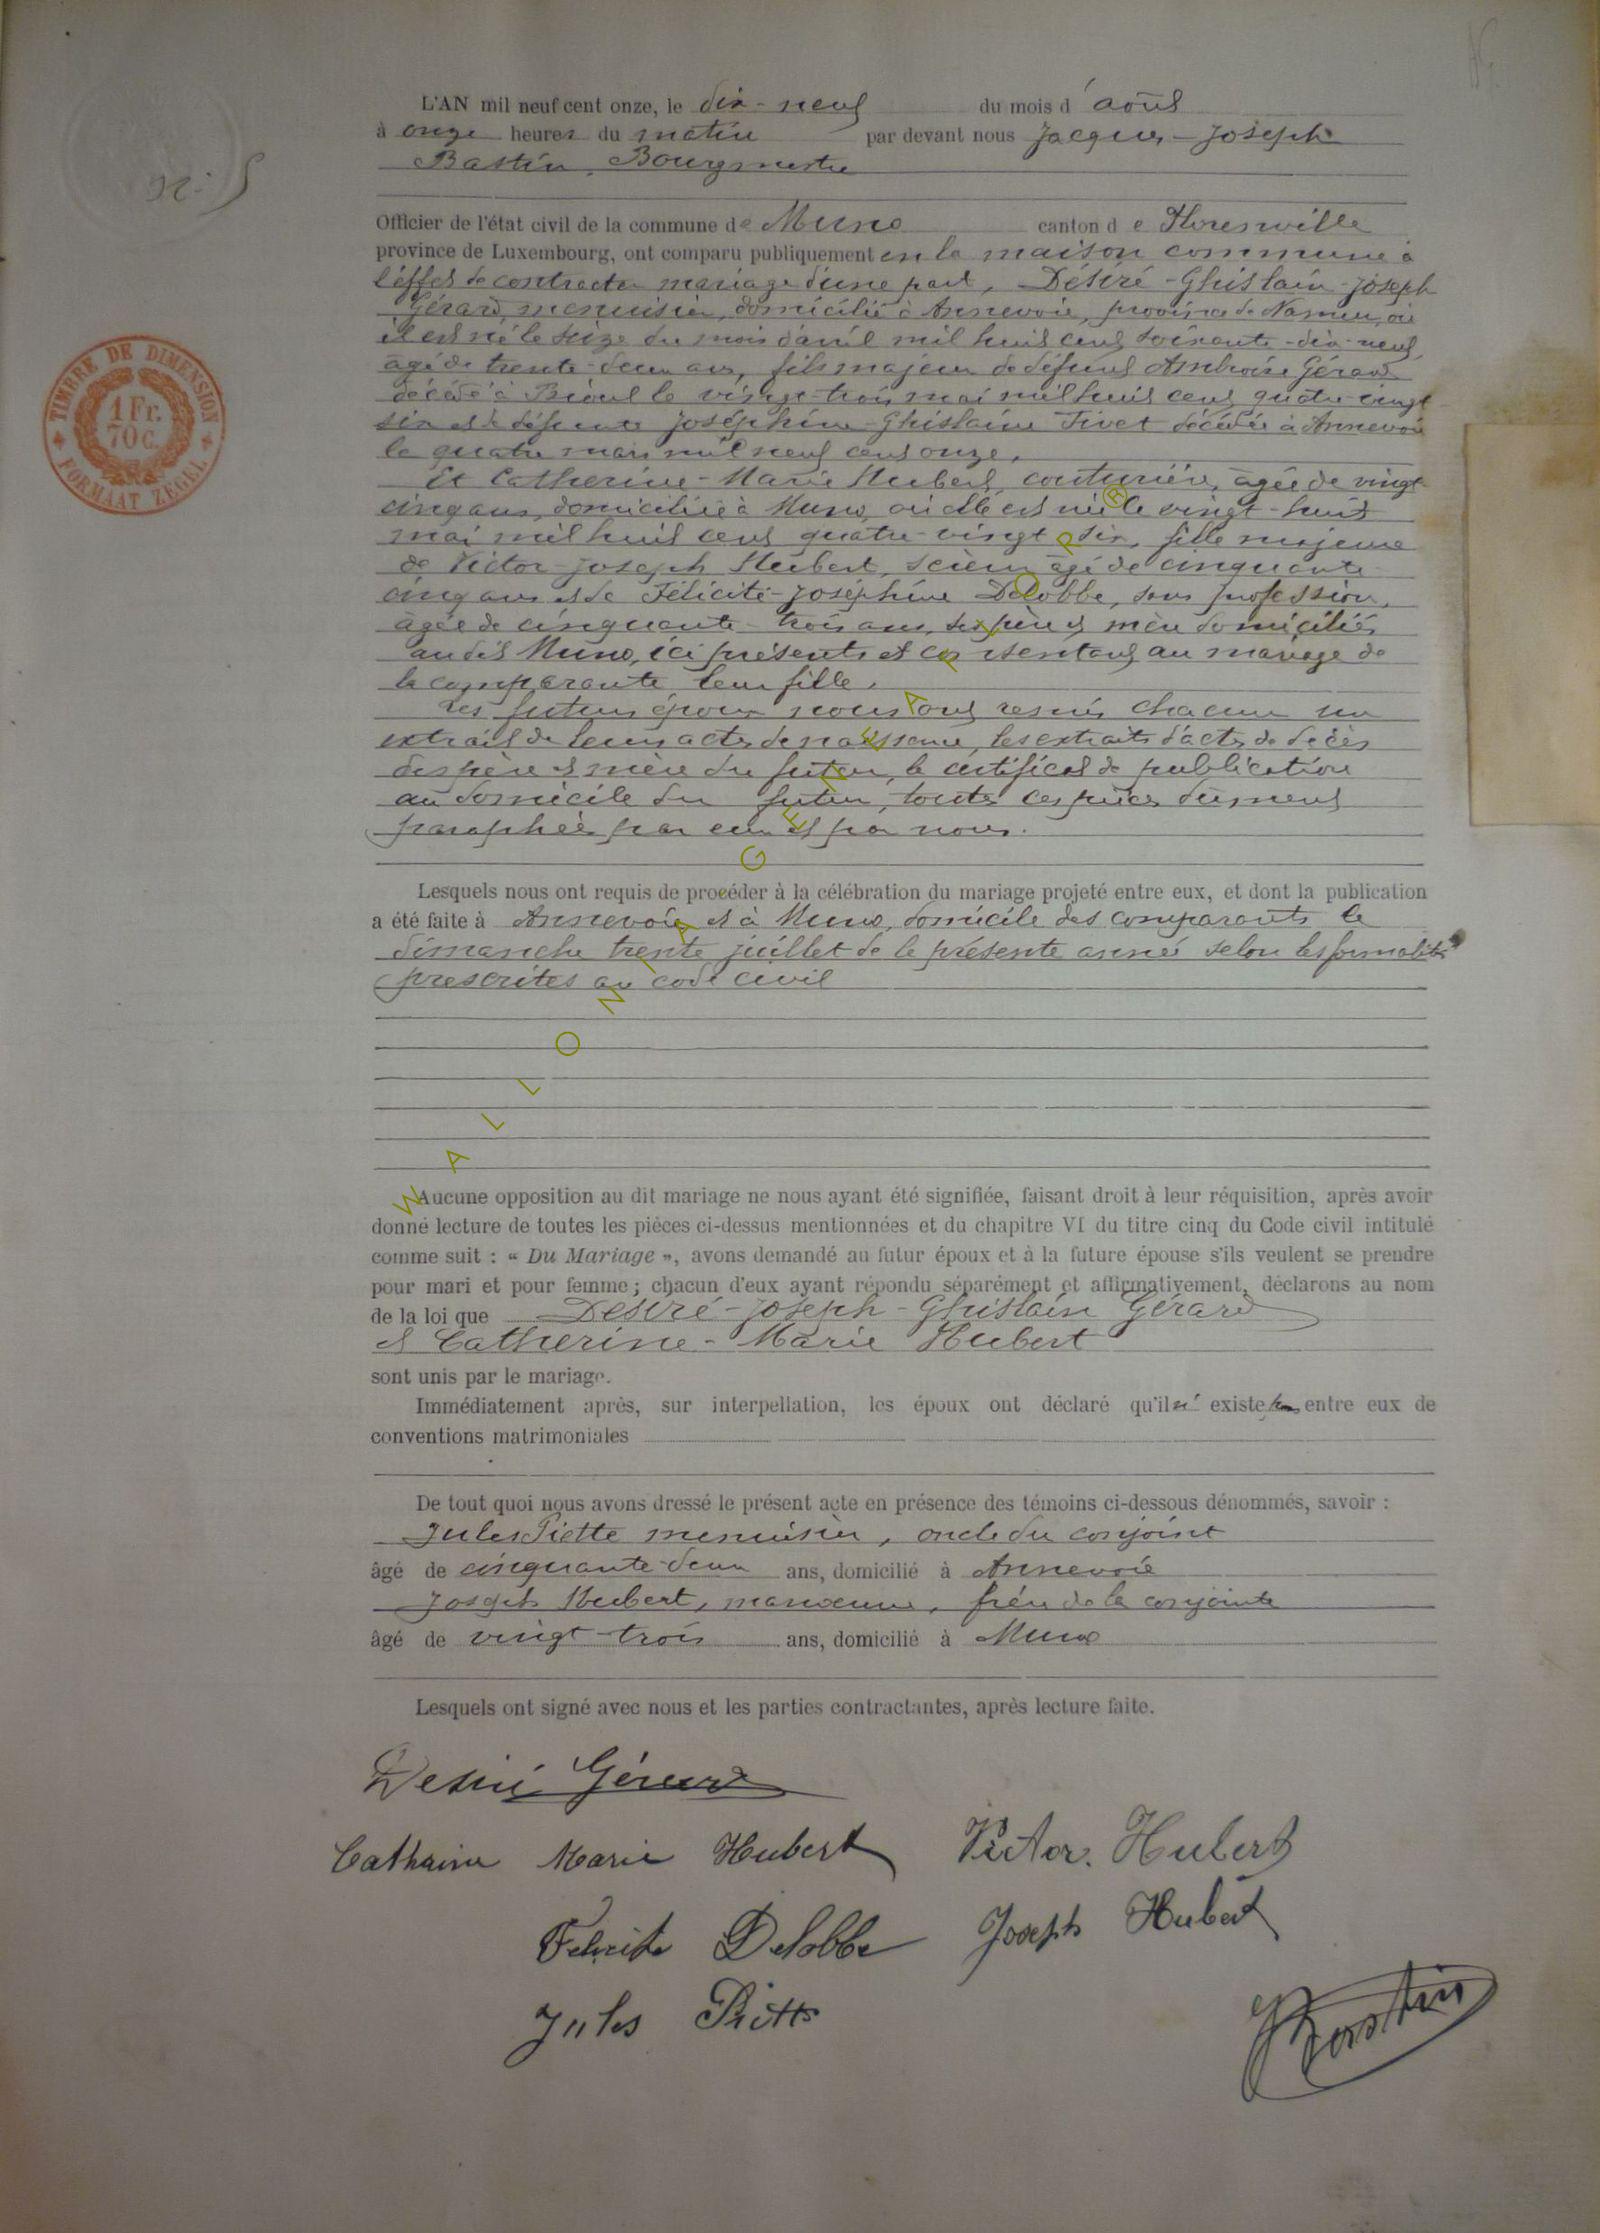 L'AN mil neuf cent onze, le dix-neuf du mois d'août
N° 5
à onze heures du matin par devant nous Jacques-Joseph
Bastin, Bourgmestre
Officier de l'état civil de la commune de Muno canton de Florenville
province de Luxembourg, ont comparu publiquement en la maison commune à
l'effet de contracter mariage d'une part, Désiré-Ghislain-Joseph
Gérard, menuisier, domicilié à Annevoie, province de Namur, où
il est né le seize du mois d'avril mil huit cent soixante-dix-neuf,
âgé de trente-deux ans, fils majeur de défunt Ambroise Gérard
décédé à Bioul le vingt-trois mai mil huit cent quatre-vingt
six et de défunte Joséphine-Ghislaine Tivet décédée à Annevoie
le quatre mars mil neuf cent onze.
Et Catherine-Marie Hubert, couturière, âgée de vingt
cinq ans, domiciliée à Muno, où elle est née le vingt-huit
mai mil huit cent quatre-vingt six, fille majeure
de Victor-Joseph Hubert, scieur âgé de cinquante
cinq ans et de Félicité-Joséphine Delobbe, sans profession,
âgée de cinquante-trois ans, ses père et mère domiciliés
au dit Muno, ici présents et consentant au mariage de
la comparante leur fille.
Les futurs époux nous ont remis chacun un
extrait de leurs actes de naissance, les extraits d'actes de décès
des père et mère du futur, le certificat de publication
au domicile du futur, toutes ces pièces dûment
paraphées par eux et par nous.
Lesquels nous ont requis de procéder à la célébration du mariage projeté entre eux, et dont la publication
a été faite à Annevoie et à Muno, domicile des comparants le
dimanche trente juillet de la présente année selon les formalités
prescrites au code civil
Aucune opposition au dit mariage ne nous ayant été signifiée, faisant droit à leur réquisition, après avoir
donné lecture de toutes les pièces ci-dessus mentionnées et du chapitre VI du titre cinq du Code civil intitulé
comme suit : « Du Mariage », avons demandé au futur époux et à la future épouse s'ils veulent se prendre
pour mari et pour femme ; chacun d'eux ayant répondu séparément et affirmativement, déclarons au nom
de la loi que Désiré-Joseph-Ghislain Gérard
et Catherine-Marie Hubert
sont unis par le mariage.
Immédiatement après, sur interpellation, les époux ont déclaré qu'il n'existe pas entre eux de
conventions matrimoniales
De tout quoi nous avons dressé le présent acte en présence des témoins ci-dessous dénommés, savoir :
Jules Piette menuisier, oncle du conjoint
âgé de cinquante-deux ans, domicilié à Annevoie
Joseph Hubert, manœuvre, frère de la conjointe
âgé de vingt-trois ans, domicilié à Muno
Lesquels ont signé avec nous et les parties contractantes, après lecture faite.
Désiré Gérard
Catherine Marie Hubert Victor Hubert
Félicité Delobbe Joseph Hubert
Jules Piette
J Bastin
TIMBRE DE DIMENSION
1 Fr.
70 C.
FORMAAT ZEGEL
WALLONIA GENEALOPR®